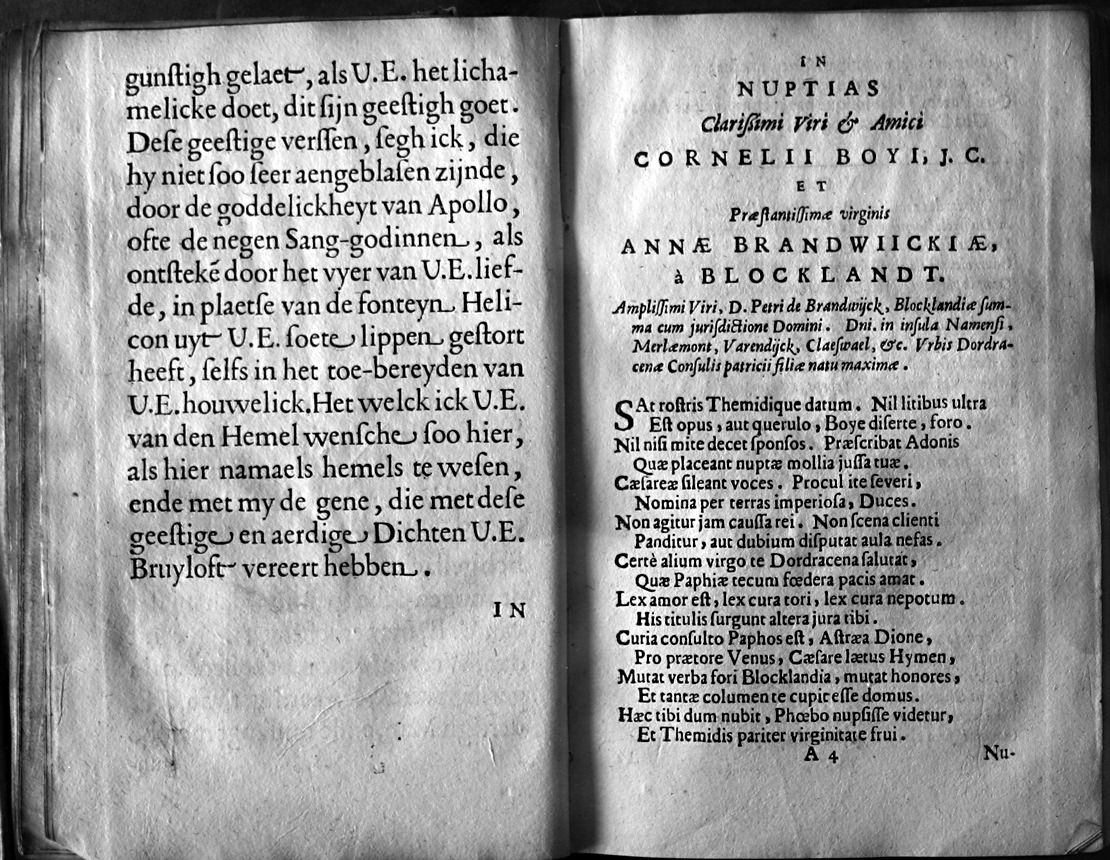 gunſtigh gelaet, als U.E. het licha-
melicke doet, dit ſijn geeſtigh goet.
Deſe geeſtige verſſen, ſegh ick, die
hy niet ſoo ſeer aengeblaſen zijnde,
door de goddelickheyt van Apollo,
ofte de negen Sang-godinnen, als
ontſteké door het vyer van U.E. lief-
de, in plaetſe van de fonteyn Heli-
con uyt U.E. ſoete lippen geſtort
heeft, ſelfs in het toe-bereyden van
U.E. houwelick. Het welck ick U.E.
van den Hemel wenſche ſoo hier,
als hier namaels hemels te weſen,
ende met my de gene, die met deſe
geeſtige en aerdige Dichten U.E.
Bruyloft vereert hebben.
IN
IN
NUPTIAS
Clariſſimi Viri & Amici
CORNELII BOYI, J. C.
ET
Præſtantiſſimæ virginis
ANNÆ BRANDWIICKIÆ,
à BLOCKLANDT.
Ampliſſimi Viri, D. Petri de Brandwijck, Blocklandiæ ſum-
ma cum juriſdictione Domini. Dni. in inſula Namenſi,
Merlæmont, Varendijck, Claeſwael, &c. Vrbis Dordra-
cenæ Conſulis patricii filiæ natu maximæ.
SAt roſtris Themidique datum. Nil litibus ultra
Eſt opus, aut querulo, Boye diſerte, foro.
Nil niſi mite decet ſponſos. Præſcribat Adonis
Quæ placeant nuptæ mollia juſſa tuæ.
Cæſareæ ſileant voces. Procul ite ſeveri,
Nomina per terras imperioſa, Duces.
Non agitur jam cauſſa rei. Non ſcena clienti
Panditur, aut dubium diſputat aula nefas.
Certè alium virgo te Dordracena ſalutat,
Quæ Paphiæ tecum fœdera pacis amat.
Lex amor eſt, lex cura tori, lex cura nepotum.
His titulis ſurgunt altera jura tibi.
Curia conſulto Paphos eſt, Aſtræa Dione,
Pro prætore Venus, Cæſare lætus Hymen,
Mutat verba fori Blocklandia, mutat honores,
Et tantæ columen te cupit eſſe domus.
Hæc tibi dum nubit, Phœbo nupſiſſe videtur,
Et Themidis pariter virginitate frui.
A 4
Nu-